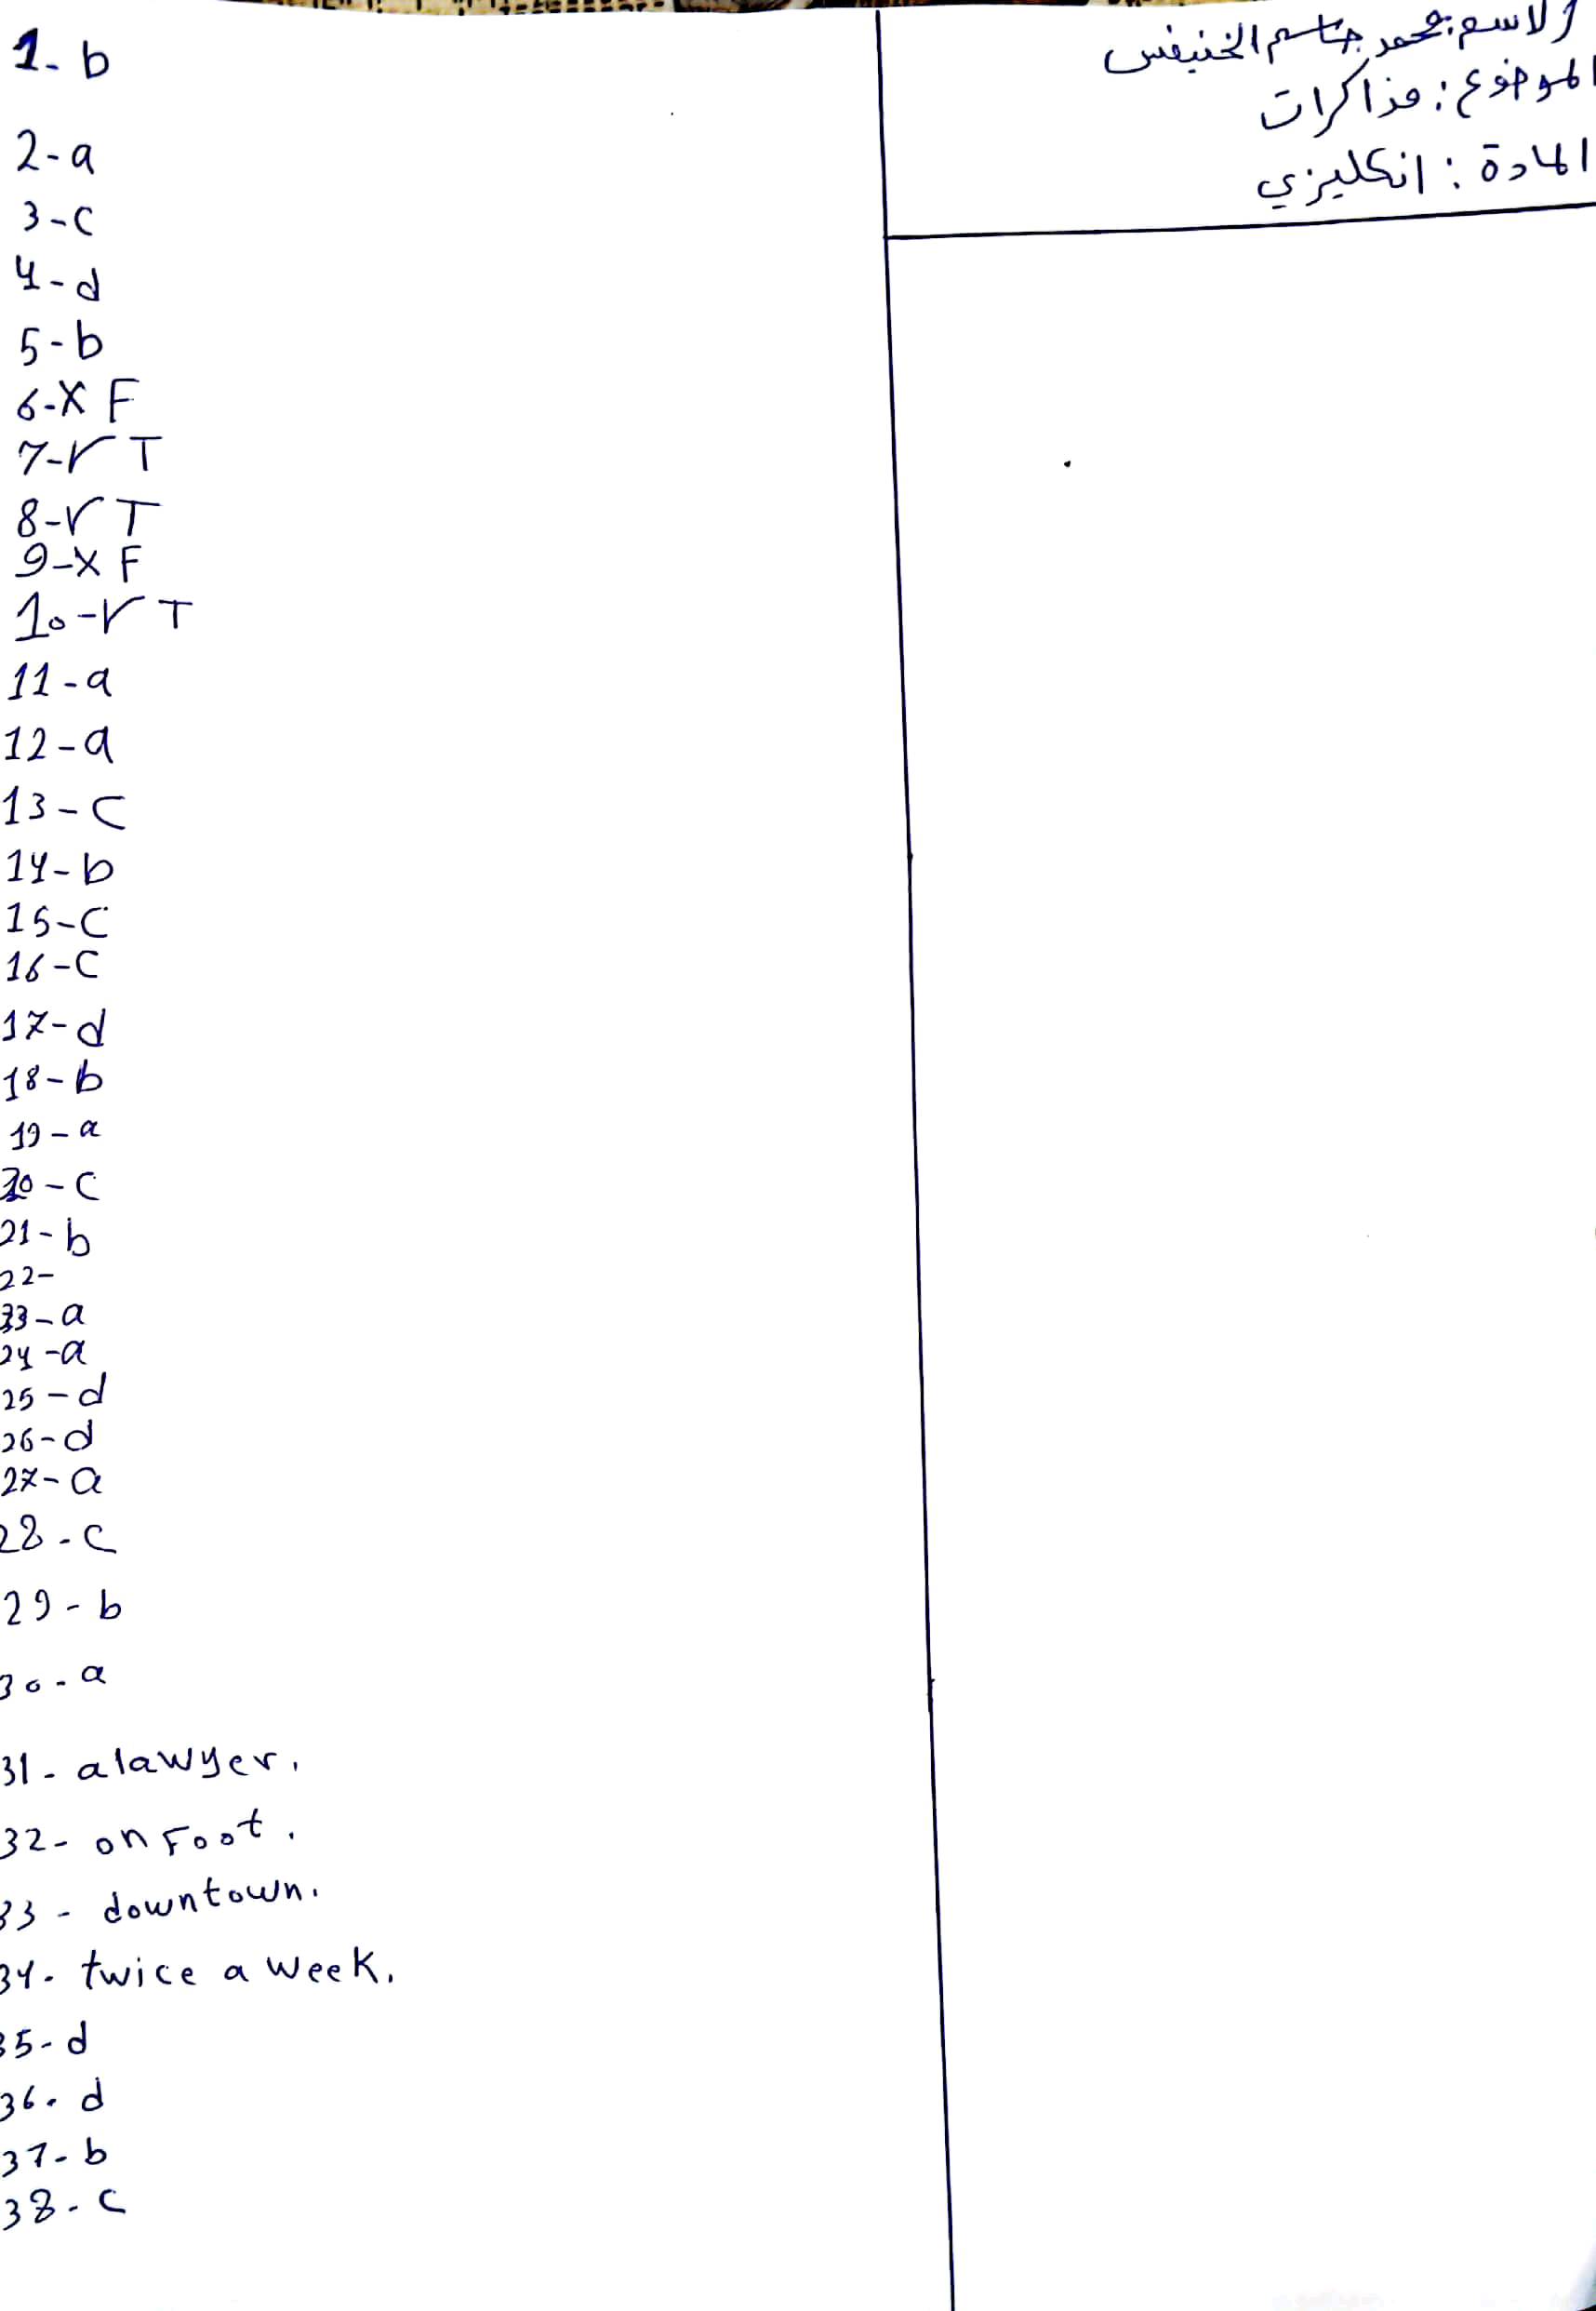 الاسم: محمد جاسم الخنيفس
الموضوع: مذاكرات
المادة: انكليزي
1- b
2-a
3-c
4-d
5-b
6-X F
7-√ T
8-√ T
9-X F
10-√ T
11-a
12-a
13-c
14-b
15-c
16-c
17-d
18-b
19-a
20-c
21-b
22-
23-a
24-a
25-d
26-d
27-a
28-c
29-b
30-a
31- a lawyer.
32- on Foot.
33- downtown.
34- twice a week.
35-d
36-d
37-b
38-c